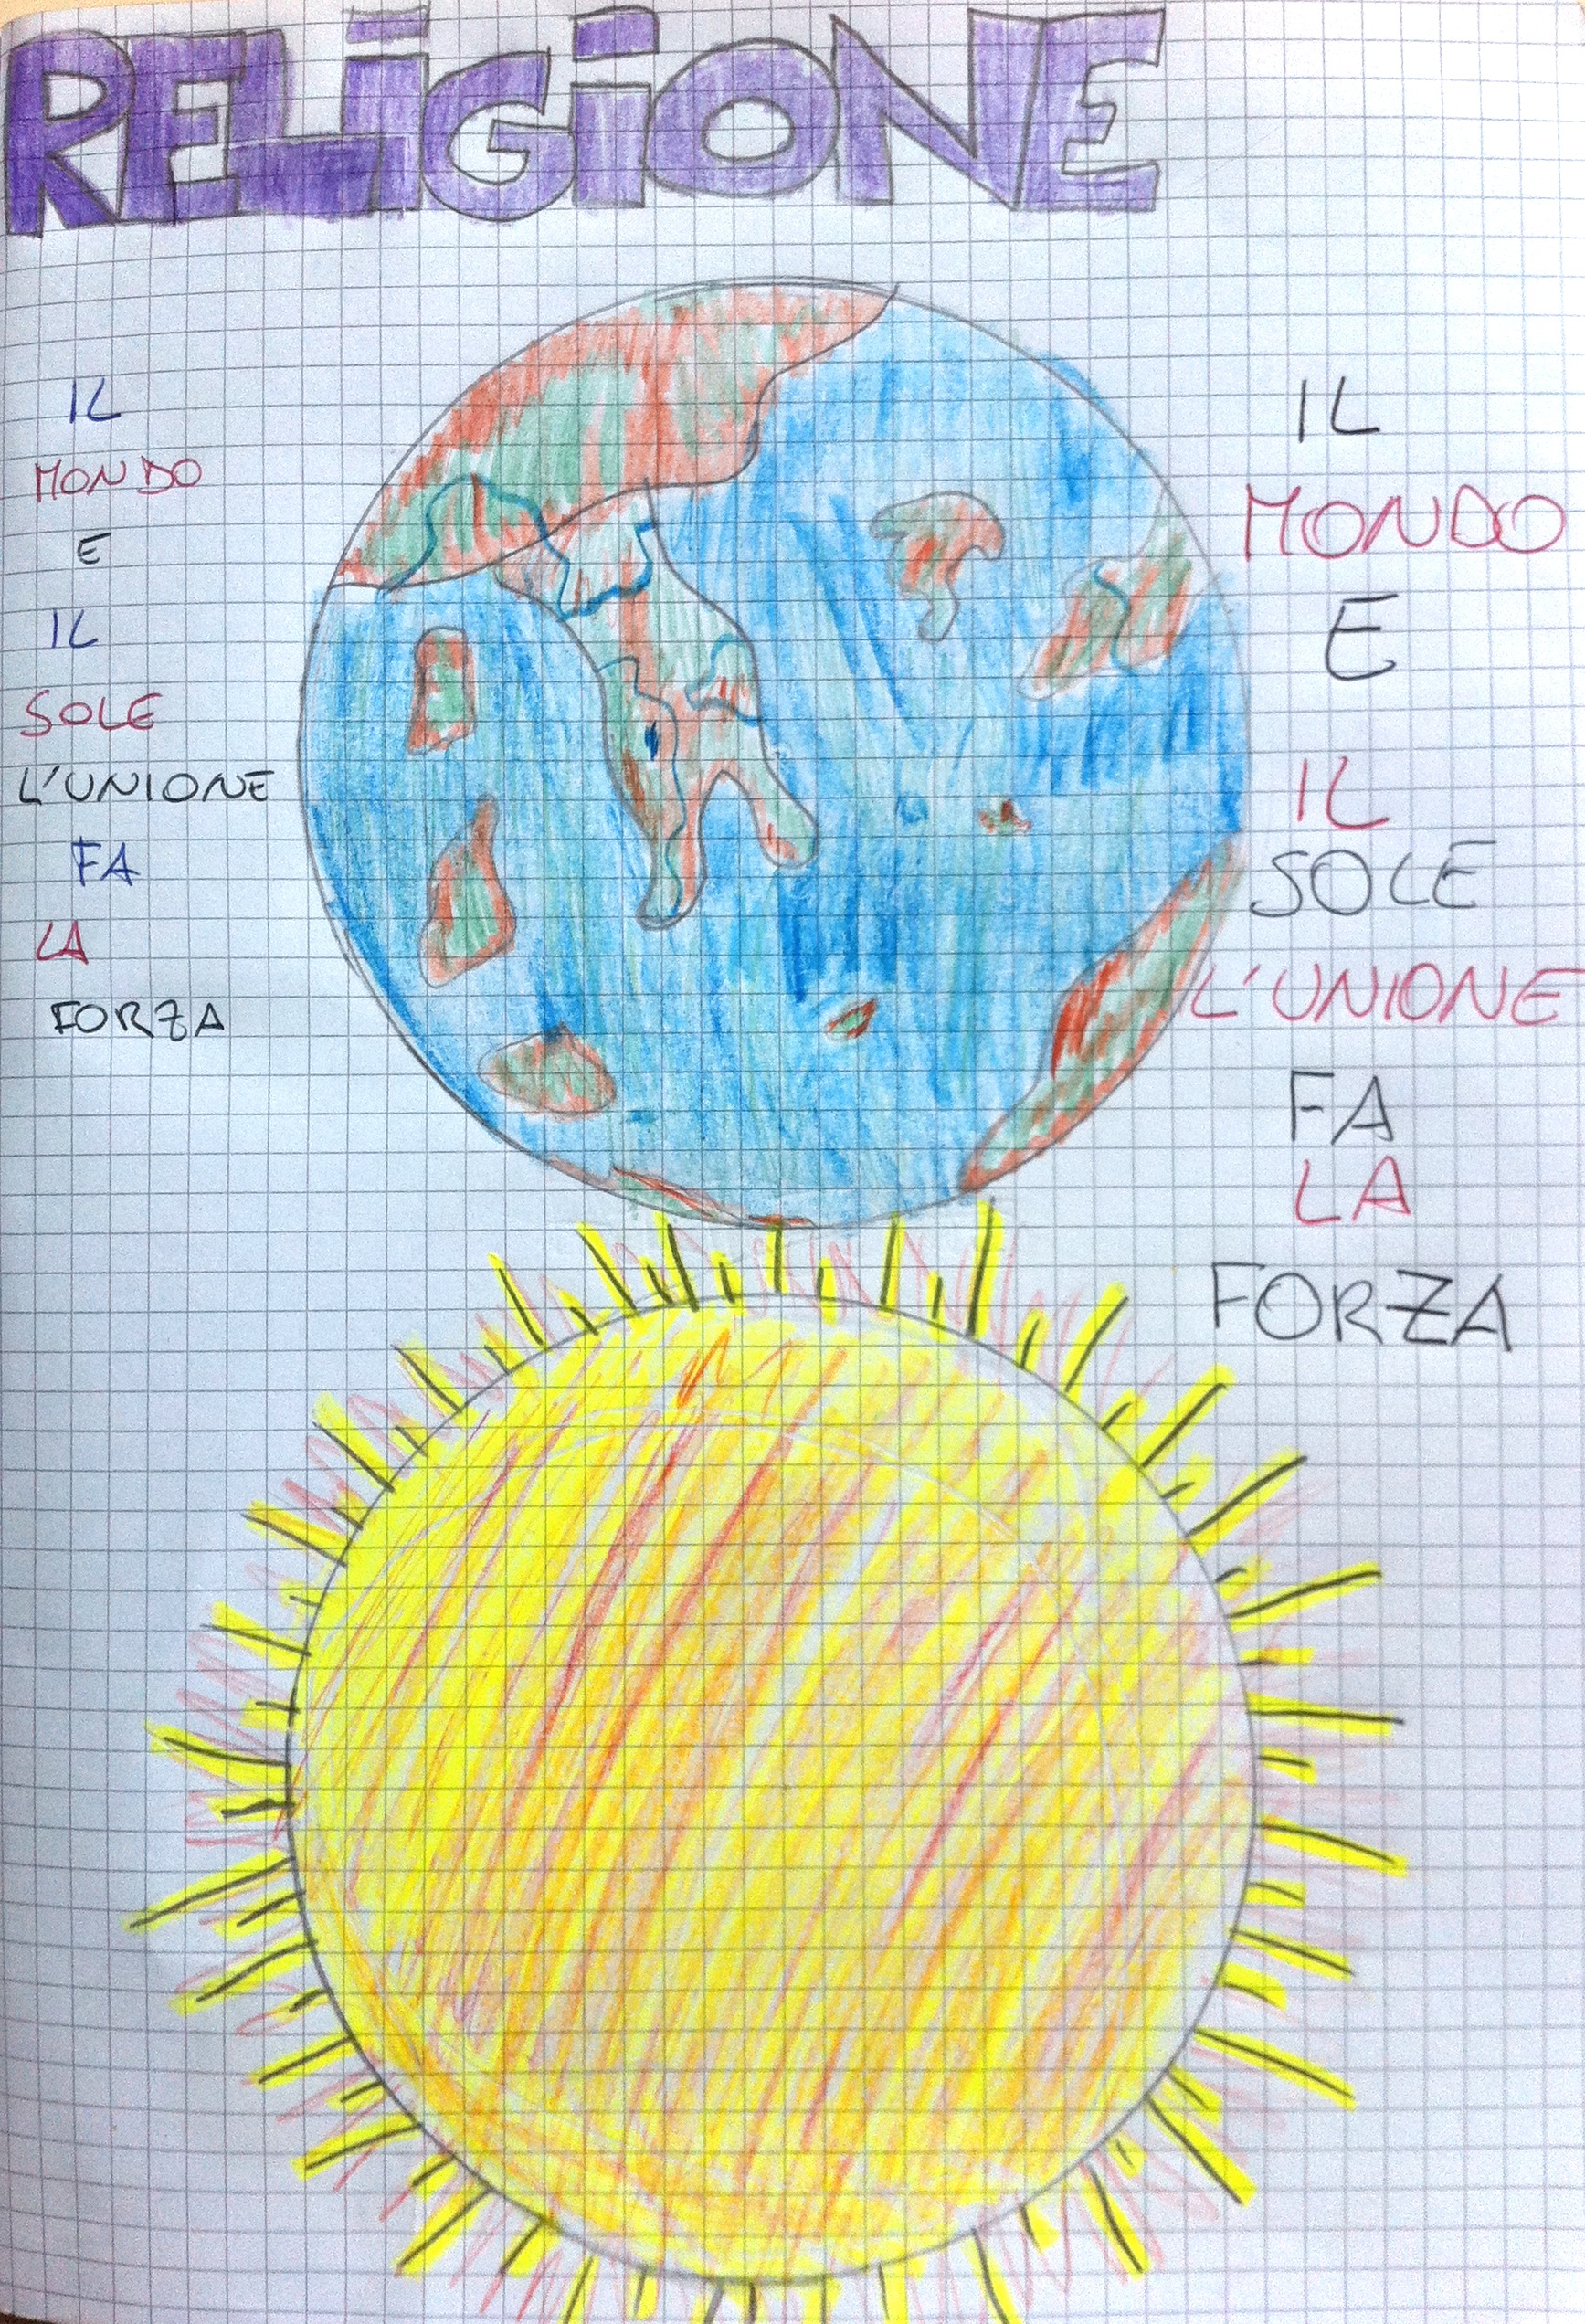 RELiGiONE
IL
MONDO
E
IL
SOLE
L'UNIONE
FA
LA
FORZA
IL
MONDO
E
IL
SOLE
L'UNIONE
FA
LA
FORZA